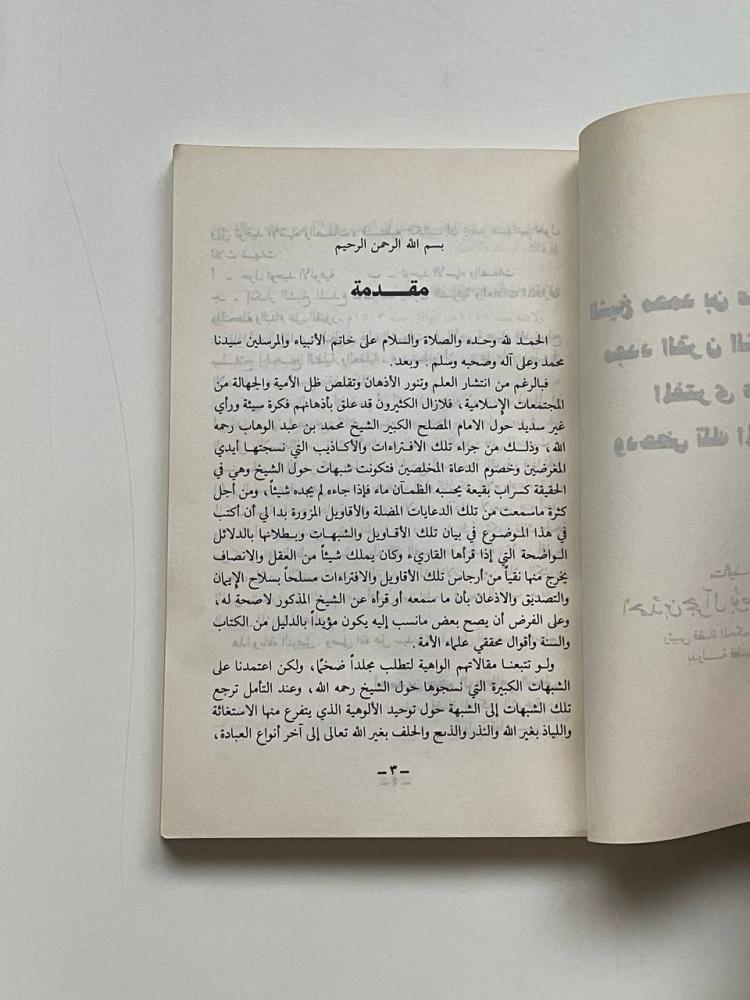 بسم الله الرحمن الرحيم
مقـــدمة
الحمـد لله وحـده والصلاة والسلام على خاتم الأنبياء والمرسلين سيدنا
محمد وعلى آله وصحبه وسلم . وبعد .
فبالرغم من انتشار العلم وتنور الأذهان وتقلص ظل الأمية والجهالة من
المجتمعات الإسلامية، فلازال الكثيرون قد علق بأذهانهم فكرة سيئة ورأي
غير سديد حول الامام المصلح الكبير الشيخ محمد بن عبد الوهاب رحمه
الله، وذلـك من جراء تلك الافـتراءات والأكـاذيب التي نسجتهـا أيدي
المغرضين وخصوم الدعاة المخلصين فتكونت شبهات حول الشيخ وهي في
الحقيقة كسراب بقيعة يحسبه الظمـآن ماء فإذا جاءه لم يجده شيئاً، ومن أجل
كثرة ماسمعت من تلك الدعايات المضلة والأقاويل المزورة بدا لي أن أكتب
في هذا المـوضـوع في بيان تلك الأقـاويل والشبهـات وبـطلانها بالدلائل
الـواضحة التي إذا قرأها القاريء وكان يملك شيئاً من العقل والانصاف
يخرج منها نقياً من أرجاس تلك الأقاويل والافتراءات مسلحاً بسلاح الإيمان
والتصديق والاذعان بأن ما سمعه أو قرأه عن الشيخ المذكور لاصحة له،
وعلى الفرض أن يصح بعض مانسب إليه يكون مؤيداً بالدليل من الكتاب
والسنة وأقوال محققي علماء الأمة .
ولـو تتبعنـا مقالاتهم الواهية لتطلب مجلداً ضخماً، ولكن اعتمدنا على
الشبهات الكبيرة التي نسجوها حول الشيخ رحمه الله، وعند التأمل ترجع
تلك الشبهات إلى الشبهة حول توحيد الألوهية الذي يتفرع منها الاستغاثة
واللياذ بغير الله والنذر والذبح والحلف بغير الله تعالى إلى آخر أنواع العبادة،
– ٣ –